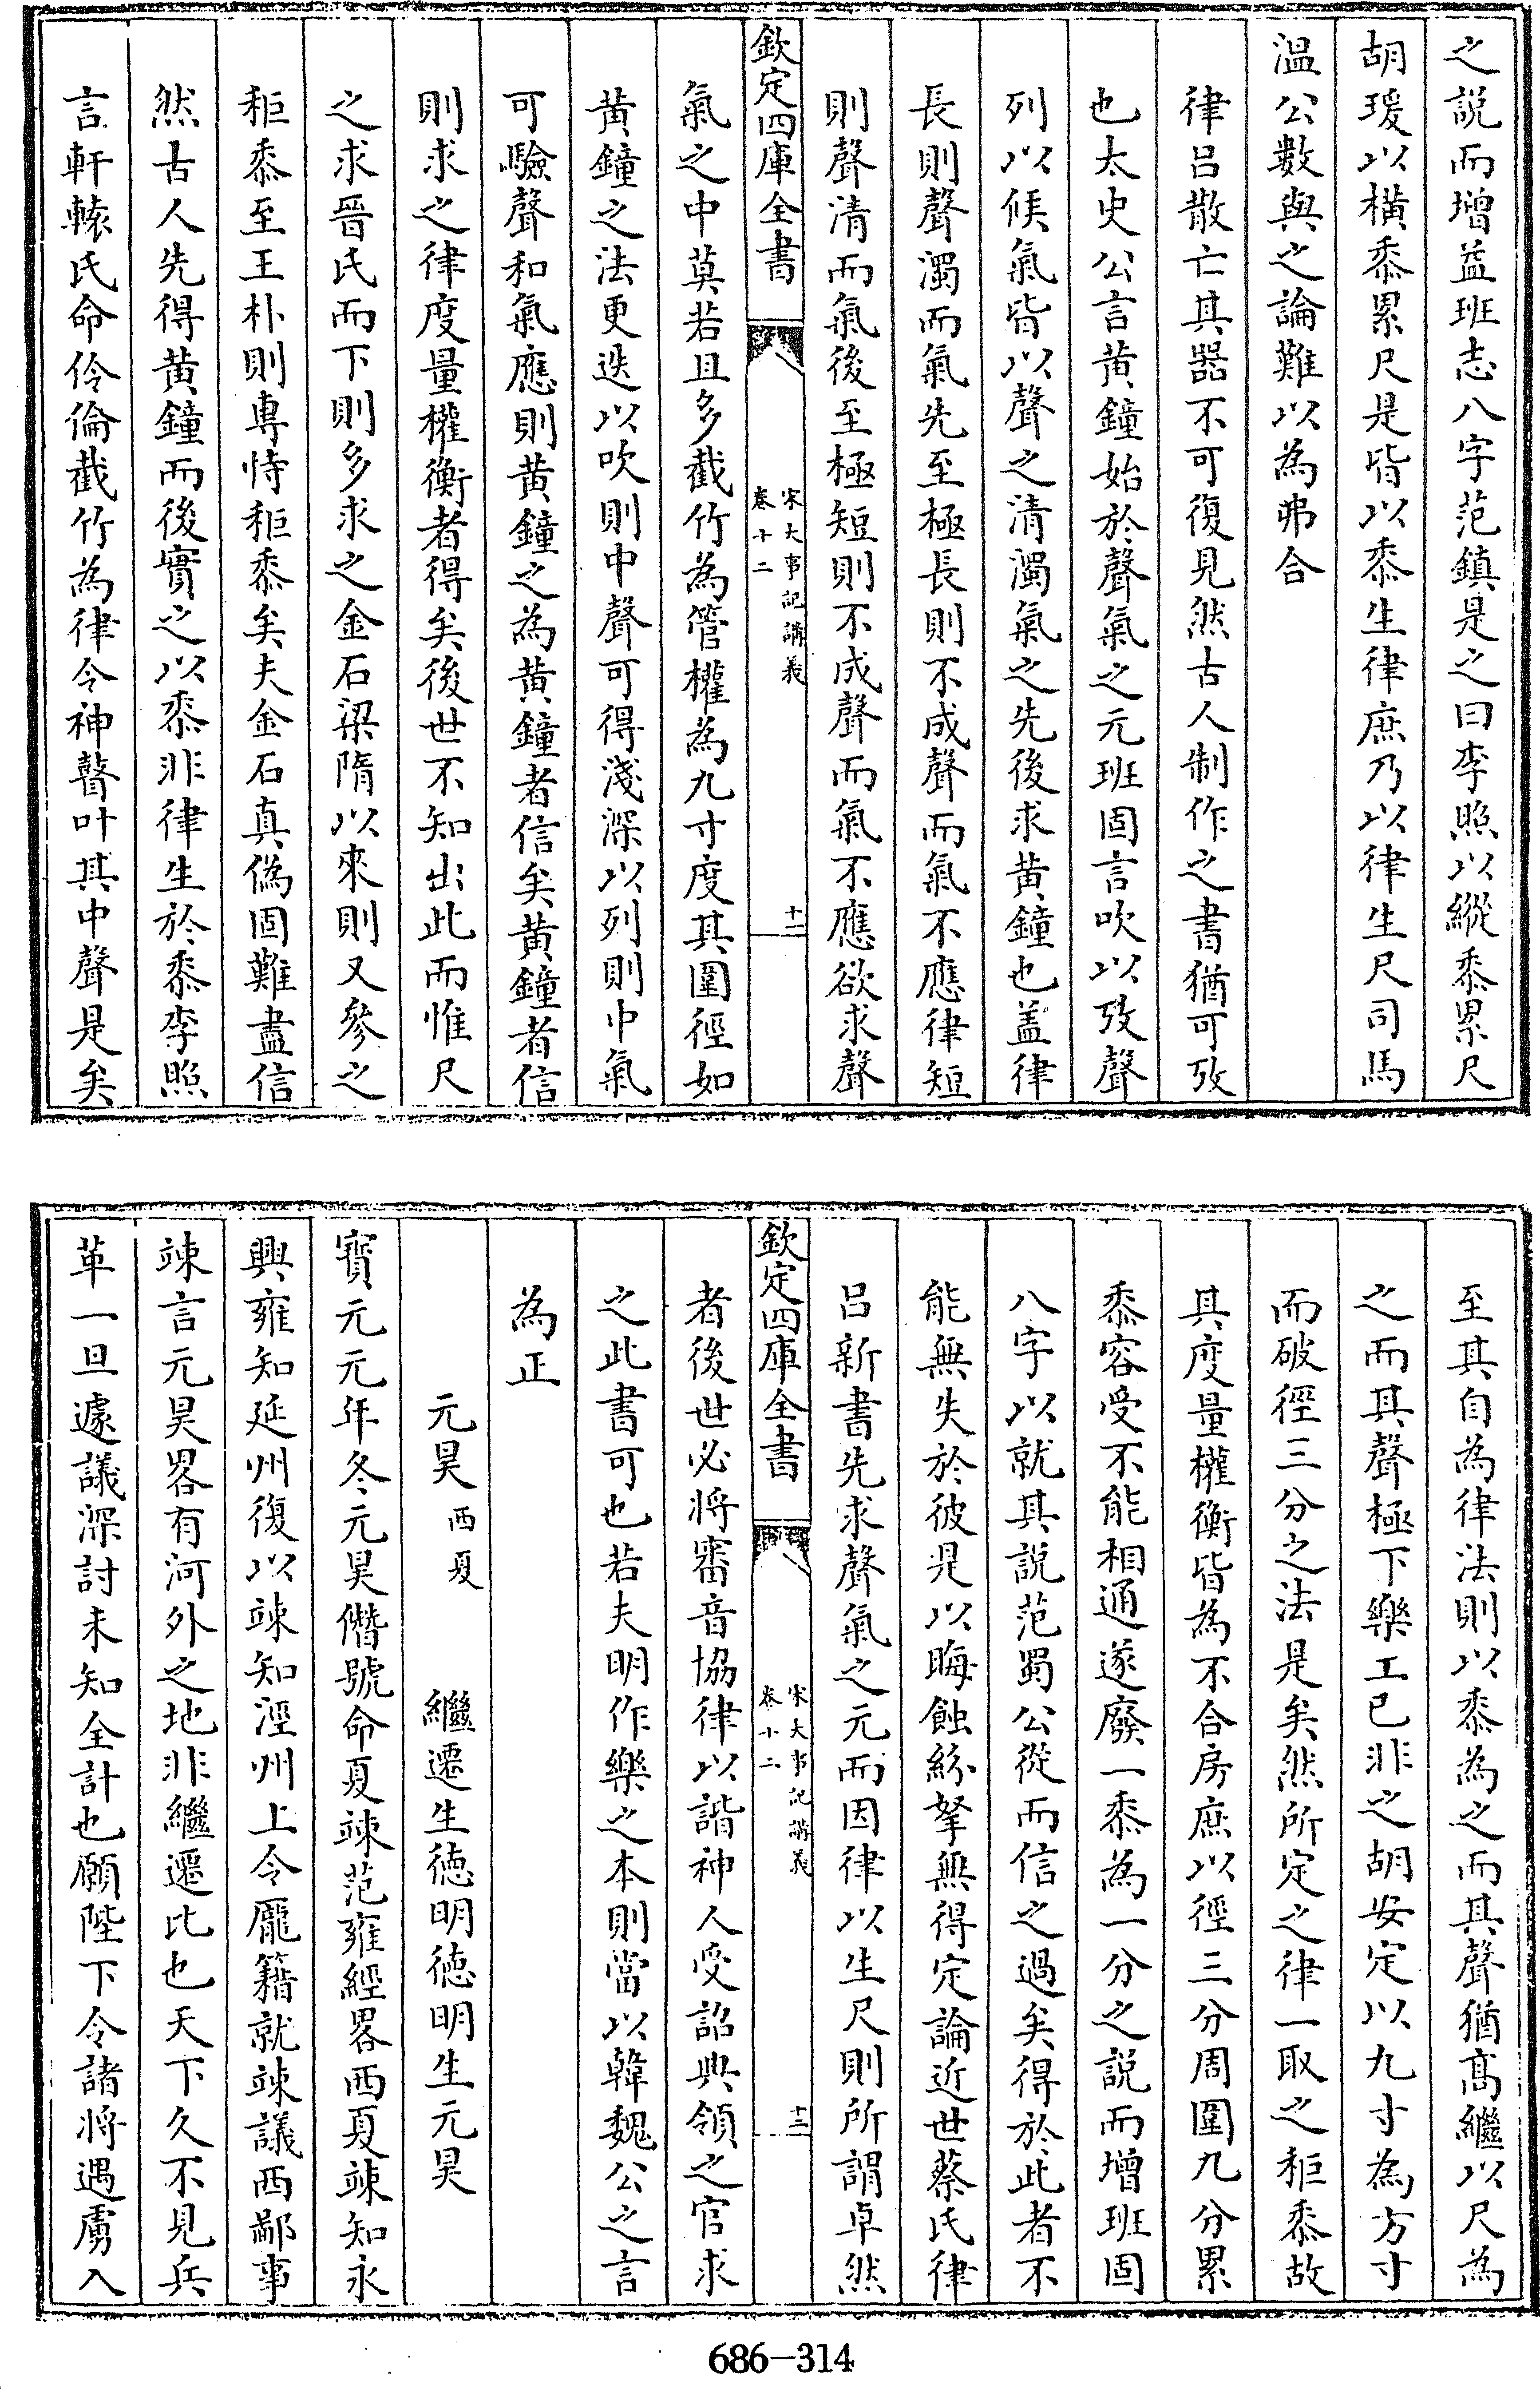 之說而增益班志八字范鎮是之曰李照以縱黍累尺
胡瑗以橫黍累尺是皆以黍生律庶乃以律生尺司馬
温公數與之論難以為弗合
律吕散亡其器不可復見然古人制作之書猶可攷
也太史公言黄鐘始於聲氣之元班固言吹以攷聲
列以候氣皆以聲之清濁氣之先後求黄鐘也盖律
長則聲濁而氣先至極長則不成聲而氣不應律短
則聲清而氣後至極短則不成聲而氣不應欲求聲
欽定四庫全書
宋大事記講義
卷十二
十二
氣之中莫若且多截竹為管權為九寸度其圍徑如
黄鐘之法更迭以吹則中聲可得淺深以列則中氣
可驗聲和氣應則黄鐘之為黄鐘者信矣黄鐘者信
則求之律度量權衡者得矣後世不知出此而惟尺
之求晉氏而下則多求之金石梁隋以來則又參之
秬黍至王朴則專恃秬黍矣夫金石真偽固難盡信
然古人先得黄鐘而後實之以黍非律生於黍李照
言軒轅氏命伶倫截竹為律令神瞽叶其中聲是矣
至其自為律法則以黍為之而其聲猶髙繼以尺為
之而其聲極下樂工已非之胡安定以九寸為方寸
而破徑三分之法是矣然所定之律一取之秬黍故
其度量權衡皆為不合房庶以徑三分周圍九分累
黍容受不能相通遂廢一黍為一分之說而增班固
八字以就其說范蜀公從而信之過矣得於此者不
能無失於彼是以晦蝕紛拏無得定論近世蔡氏律
吕新書先求聲氣之元而因律以生尺則所謂卓然
欽定四庫全書
宋大事記講義
卷十二
十三
者後世必將審音協律以諧神人受詔典領之官求
之此書可也若夫明作樂之本則當以韓魏公之言
為正
元昊 西夏 繼遷生徳明徳明生元昊
寳元元年冬元昊僭號命夏竦范雍經畧西夏竦知永
興雍知延州復以竦知涇州上令龎籍就竦議西鄙事
竦言元昊畧有河外之地非繼遷比也天下久不見兵
革一旦遽議深討未知全計也願陛下令諸將遇虜入
686-314